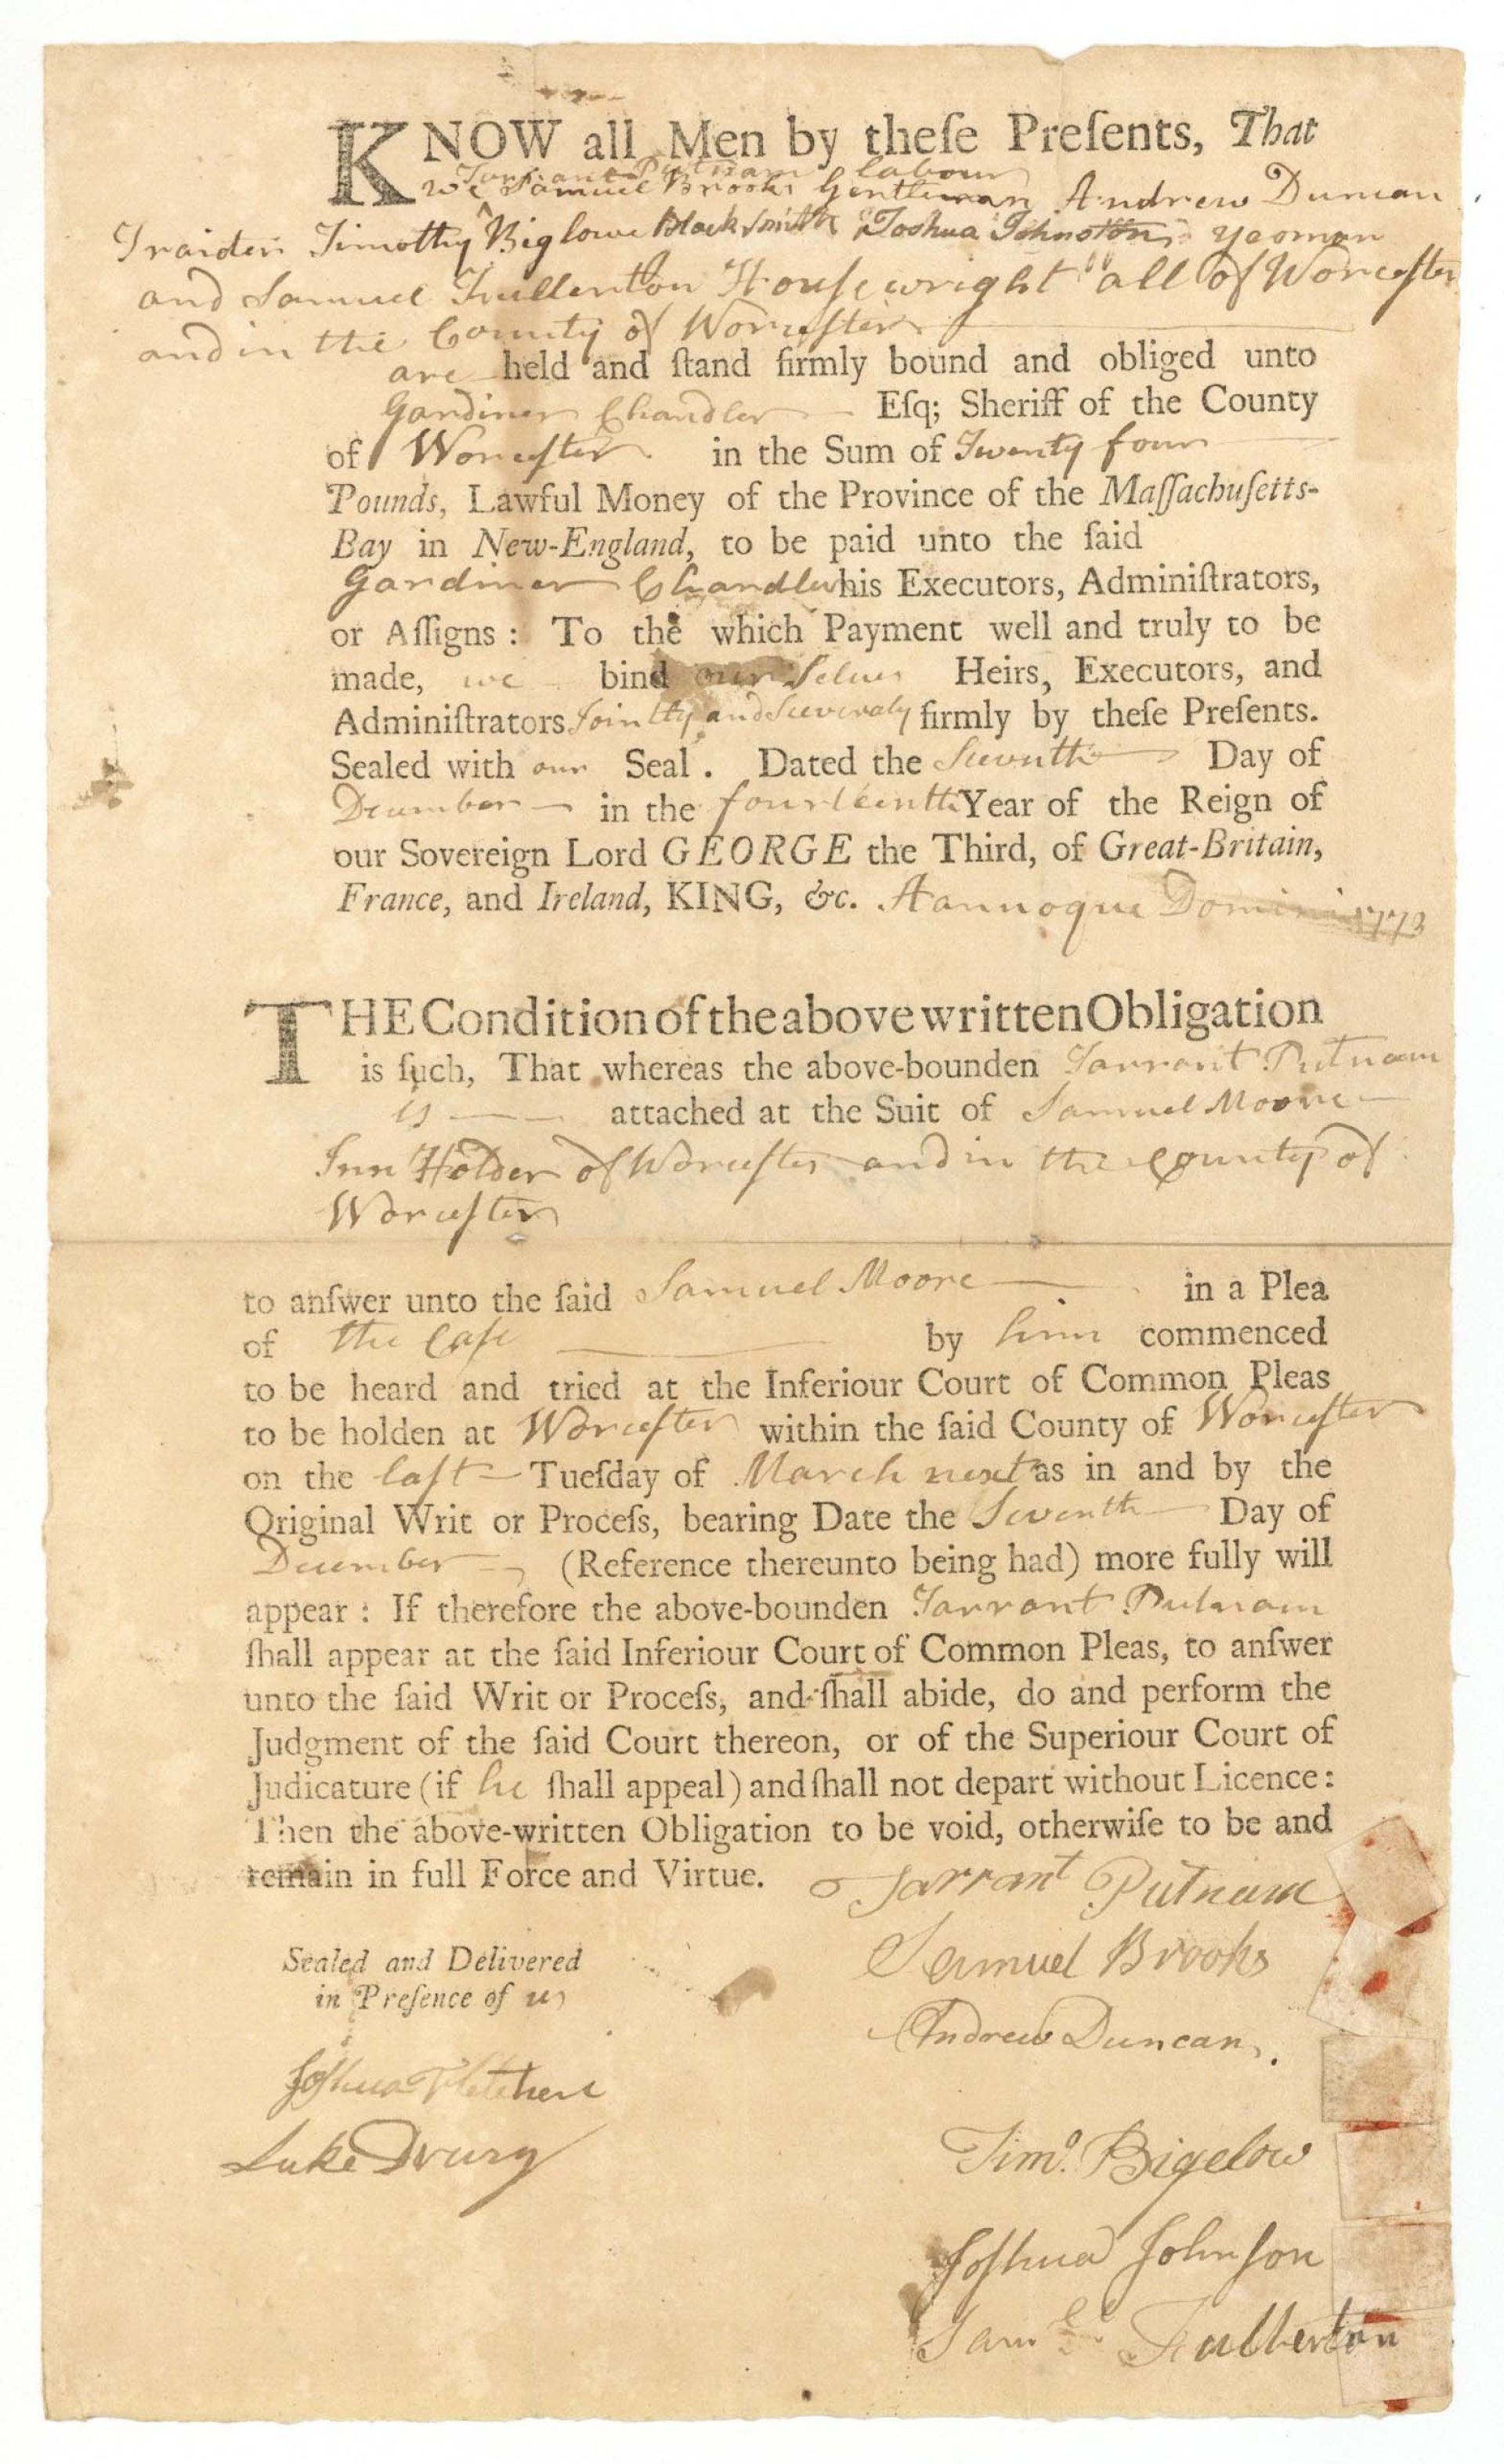 KNOW all Men by theſe Preſents, That
Tarrant Putnam labour
we Samuel Brooks Gentleman Andrew Duncan
Traider Timothy Biglowe Black Smith Joshua Johnston yeoman
and Samuel Fullerton Houſewright all of Worceſter
and in the County of Worceſter
are held and ſtand firmly bound and obliged unto
Gardiner Chandler Eſq; Sheriff of the County
of Worceſter in the Sum of Twenty four
Pounds, Lawful Money of the Province of the Maſſachuſetts-
Bay in New-England, to be paid unto the ſaid
Gardiner Chandler his Executors, Adminiſtrators,
or Aſſigns : To the which Payment well and truly to be
made, we bind our Selves Heirs, Executors, and
Adminiſtrators Jointly and Severaly firmly by theſe Preſents.
Sealed with our Seal . Dated the Seventh Day of
December in the fourteenth Year of the Reign of
our Sovereign Lord GEORGE the Third, of Great-Britain,
France, and Ireland, KING, &c. Aannoque Domini 1773
THE Condition of the above written Obligation
is ſuch, That whereas the above-bounden Tarrant Putnam
is attached at the Suit of Samuel Moore
Inn Holder of Worceſter and in the County of
Worceſter
to anſwer unto the ſaid Samuel Moore in a Plea
of the Caſe by him commenced
to be heard and tried at the Inferiour Court of Common Pleas
to be holden at Worceſter within the ſaid County of Worceſter
on the laſt Tueſday of March next as in and by the
Original Writ or Proceſs, bearing Date the Seventh Day of
December (Reference thereunto being had) more fully will
appear : If therefore the above-bounden Tarrant Putnam
ſhall appear at the ſaid Inferiour Court of Common Pleas, to anſwer
unto the ſaid Writ or Proceſs, and ſhall abide, do and perform the
Judgment of the ſaid Court thereon, or of the Superiour Court of
Judicature (if he ſhall appeal) and ſhall not depart without Licence :
Then the above-written Obligation to be void, otherwiſe to be and
remain in full Force and Virtue. Tarrant Putnam
Samuel Brooks
Sealed and Delivered
in Preſence of us
Andrew Duncan.
Joſhua Fletcher
Luke Drury
Timo. Bigelow
Joſhua Johnſon
Samll Fullerton